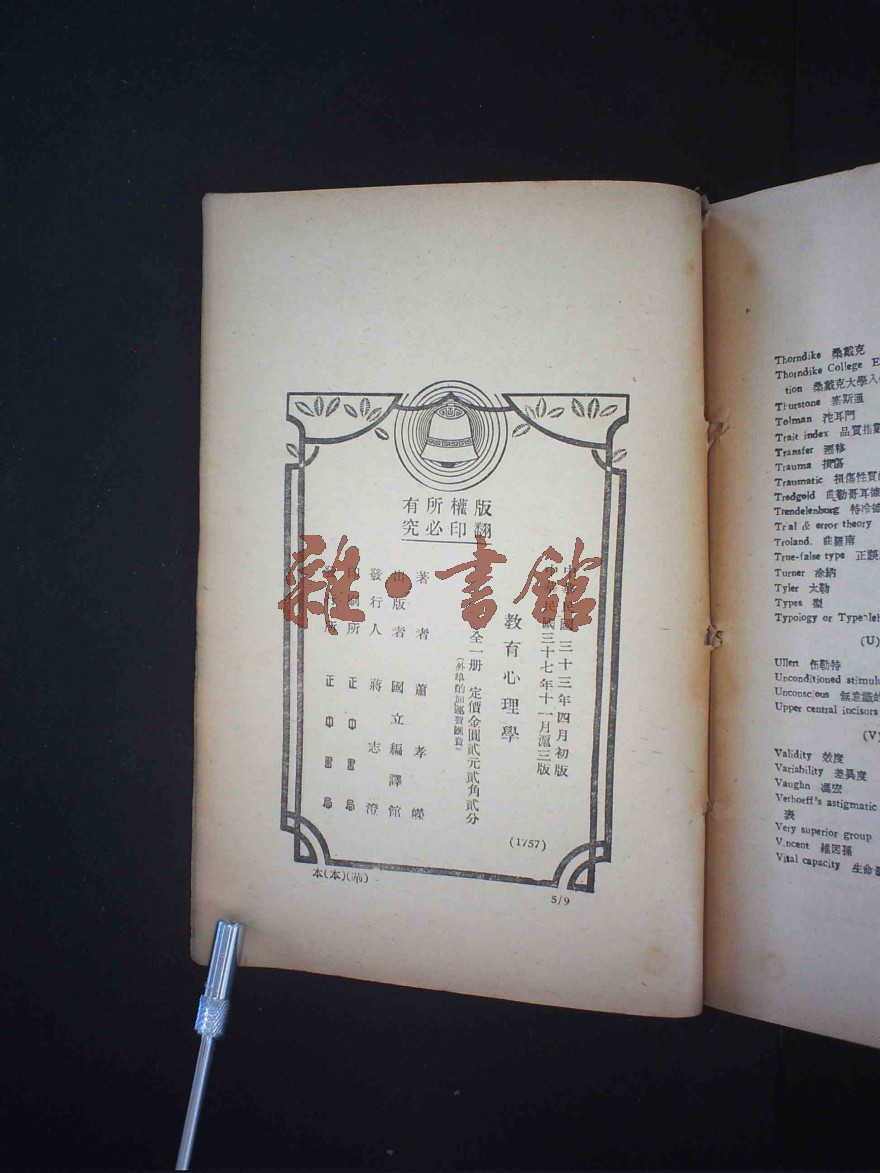 版權所有
翻印必究
中華民國三十三年四月初版
中華民國三十七年十一月滬三版
教育心理學
全一册 定價金圓貳元貳角貳分
(外埠酌加運費匯費)
著者 蕭孝嶸
出版者 國立編譯館
發行人 蔣志澄
印刷所 正中書局
發行所 正中書局
(1757)
5/9
雜·書館
Thorndike 桑戴克
Thorndike College E
tion 桑戴克大學入
Thurstone 塞斯通
Tolman 沱耳門
Trait index 品質指數
Transfer 遷移
Trauma 損傷
Traumatic 損傷性質
Tredgold
Trendelenburg 特冷德
Trial & error theory
Troland
True-false type 正誤
Turner 涂納
Tyler 太勒
Types 型
Typology or Type
(U)
Ullert 伍勒特
Unconditioned stimulu
Unconscious 無意識的
Upper central incisors
(V)
Validity 效度
Variability 差異度
Vaughn 馮宏
Verhoeff's astigmatic
表
Very superior group
Vincent 維因孫
Vital capacity 生命